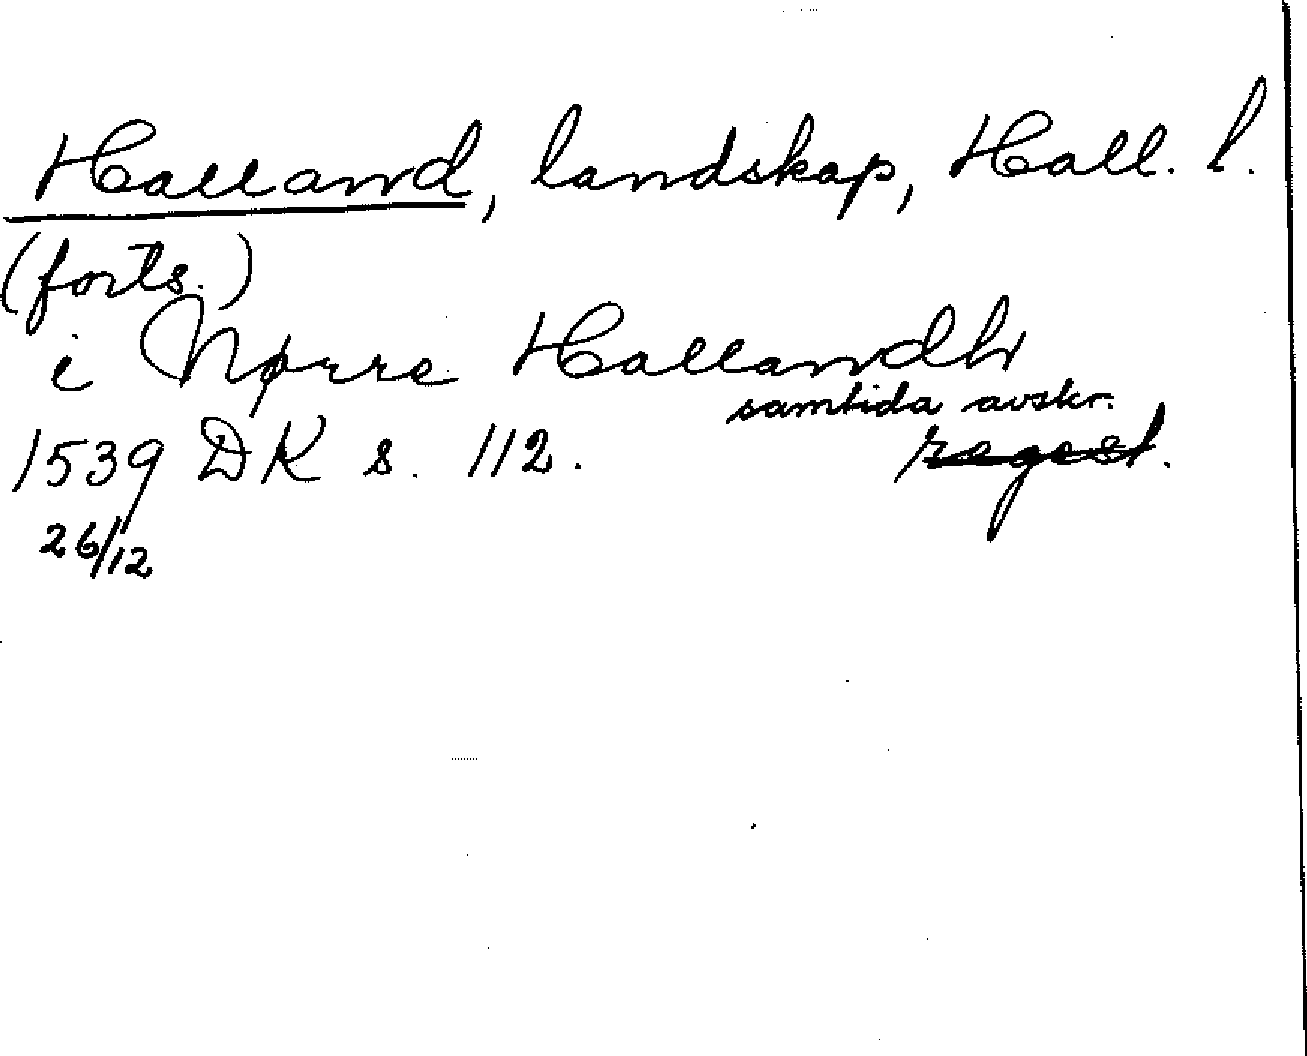 Halland, landskap, Hall. l.
(forts.)
i Nørre Hallandh
samtida avskr.
1539 DK s. 112. regest.
26/12